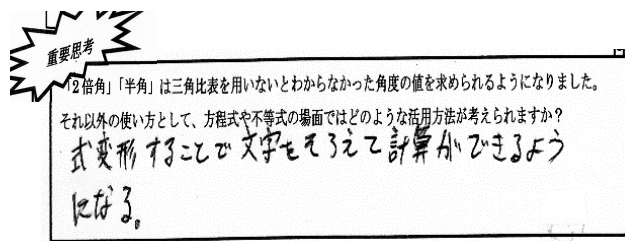 重要思考
「2倍角」「半角」は三角比表を用いないとわからなかった角度の値を求められるようになりました。
それ以外の使い方として、方程式や不等式の場面ではどのような活用方法が考えられますか？
式変形することで文字をそろえて計算ができるよう
になる。